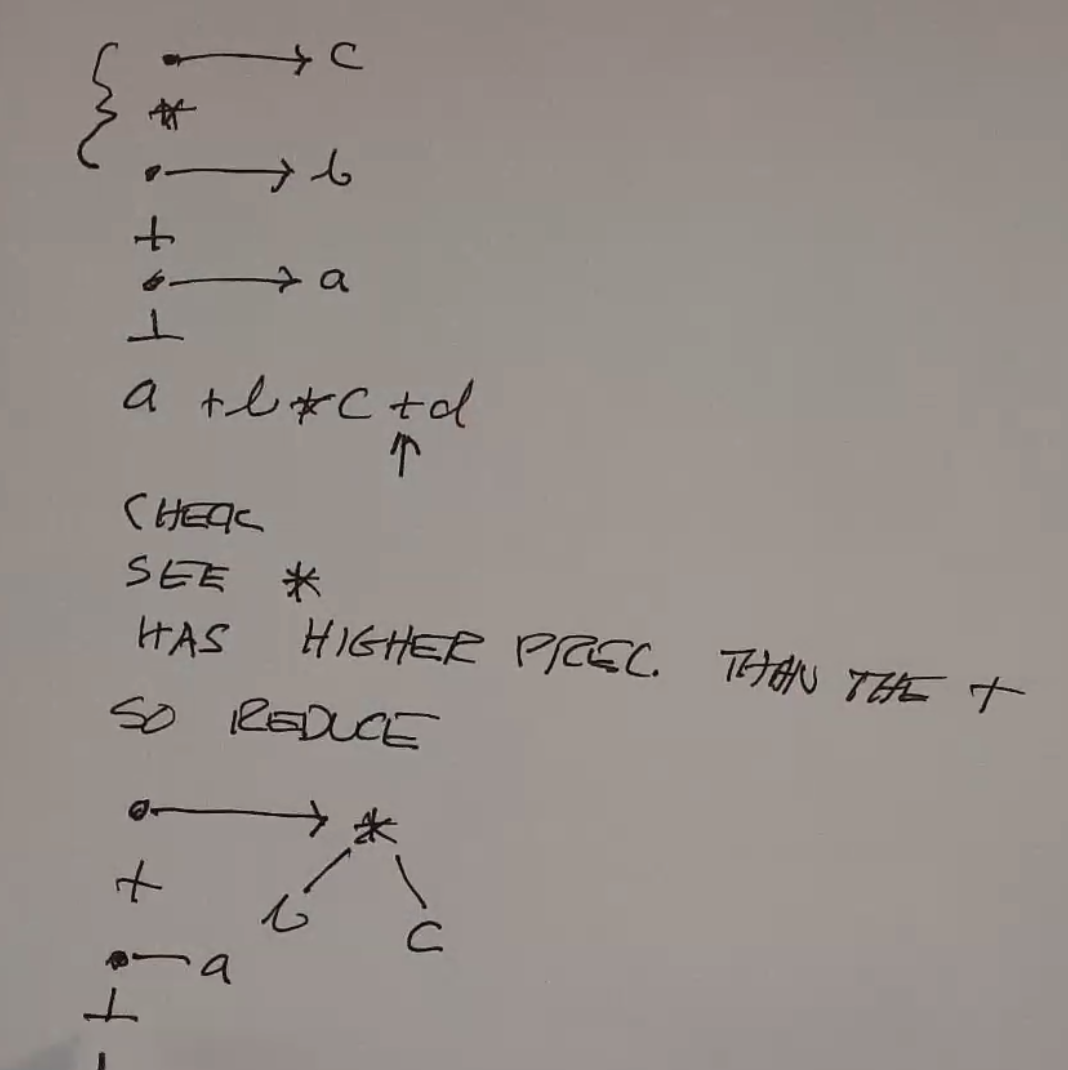 c
*
b
+
a
⊥
a + b * c + d
↑
CHECK
SEE *
HAS HIGHER PREC. THAN THE +
SO REDUCE
*
+
b c
a
⊥